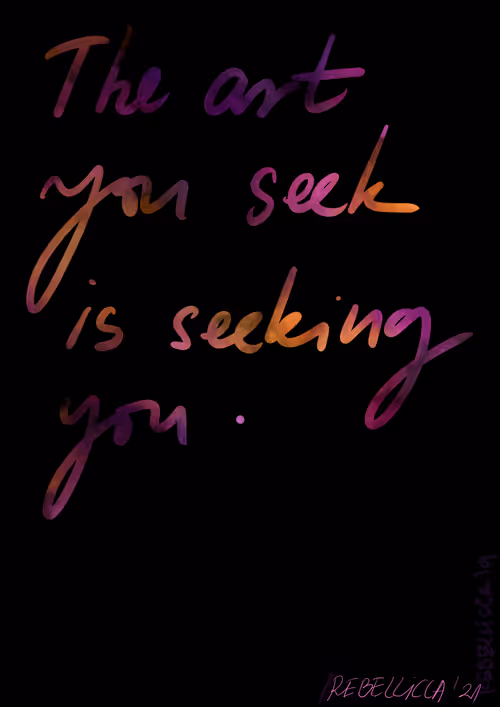 The art
you seek
is seeking
you.
REBELLICCA '21